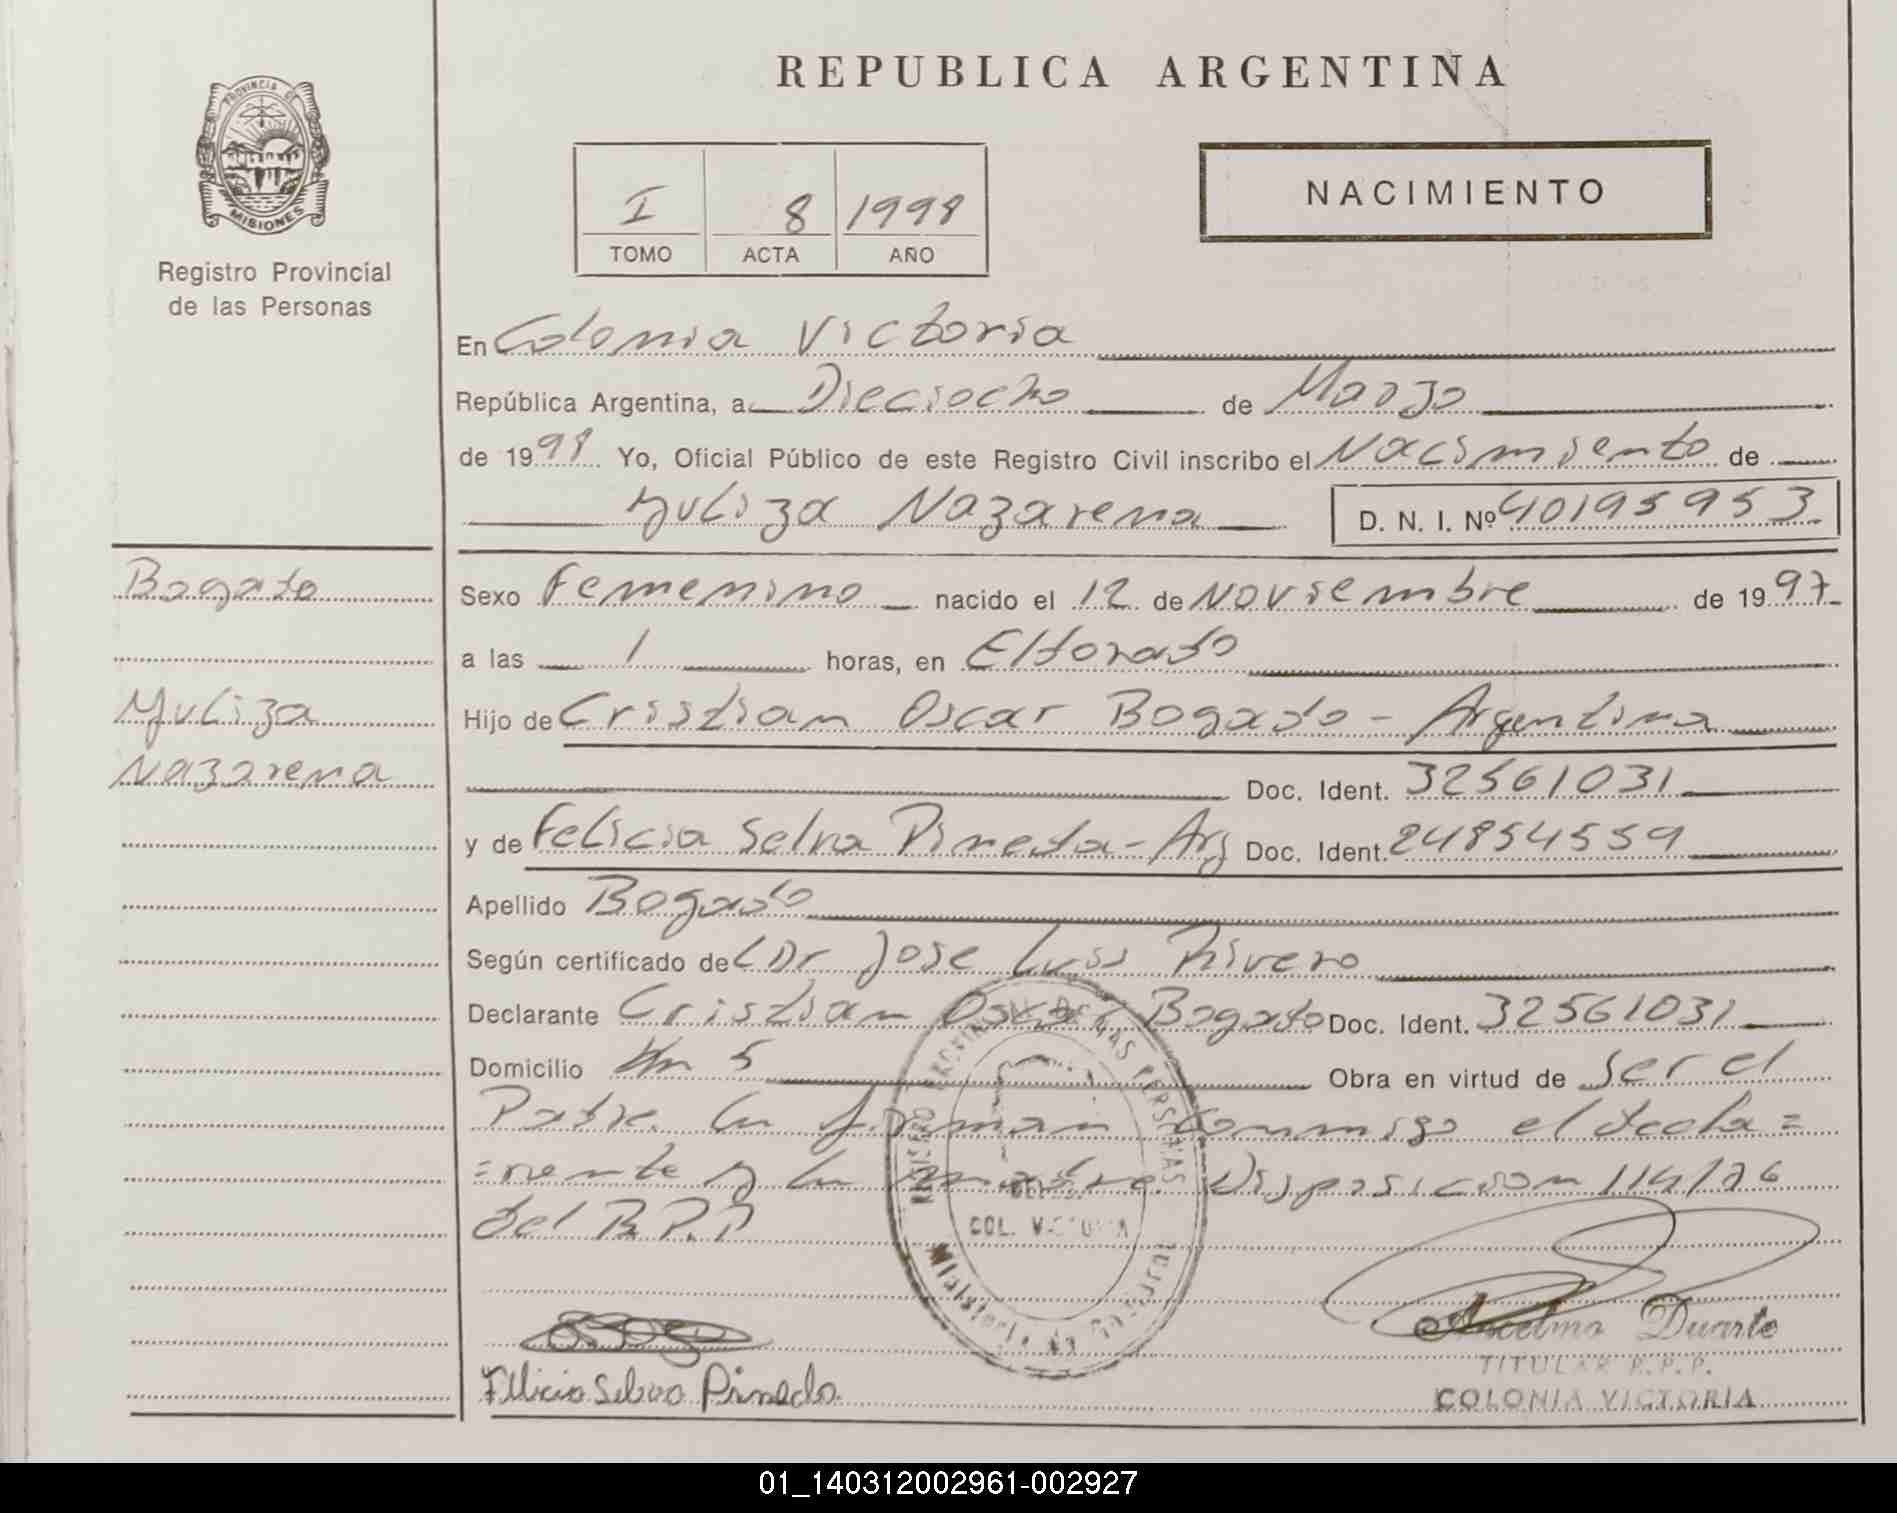 REPUBLICA ARGENTINA
PROVINCIA DE
MISIONES
Registro Provincial
de las Personas
I 8 1998
TOMO ACTA AÑO
NACIMIENTO
En Colonia Victoria
República Argentina, a Dieciocho de Marzo
de 1998 Yo, Oficial Público de este Registro Civil inscribo el Nacimiento de
Yuliza Nazarena D. N. I. Nº 40195953
Bogado
Yuliza
Nazarena
Sexo Femenino nacido el 12 de Noviembre de 1997
a las 1 horas, en Eldorado
Hijo de Cristian Oscar Bogado - Argentina
Doc. Ident. 32561031
y de Felicia Selva Pineda - Arg Doc. Ident. 24854559
Apellido Bogado
Según certificado de Dr Jose Luis Rivero
Declarante Cristian Oscar Bogado Doc. Ident. 32561031
Domicilio Km 5 Obra en virtud de ser el
Padre. La firman conmigo el decla=
=rente y la madre. Disposicion 114/76
del R.P.P
COL. VICTORIA
Felicia Selva Pineda
Anselmo Duarte
TITULAR R.P.P.
COLONIA VICTORIA
01_140312002961-002927